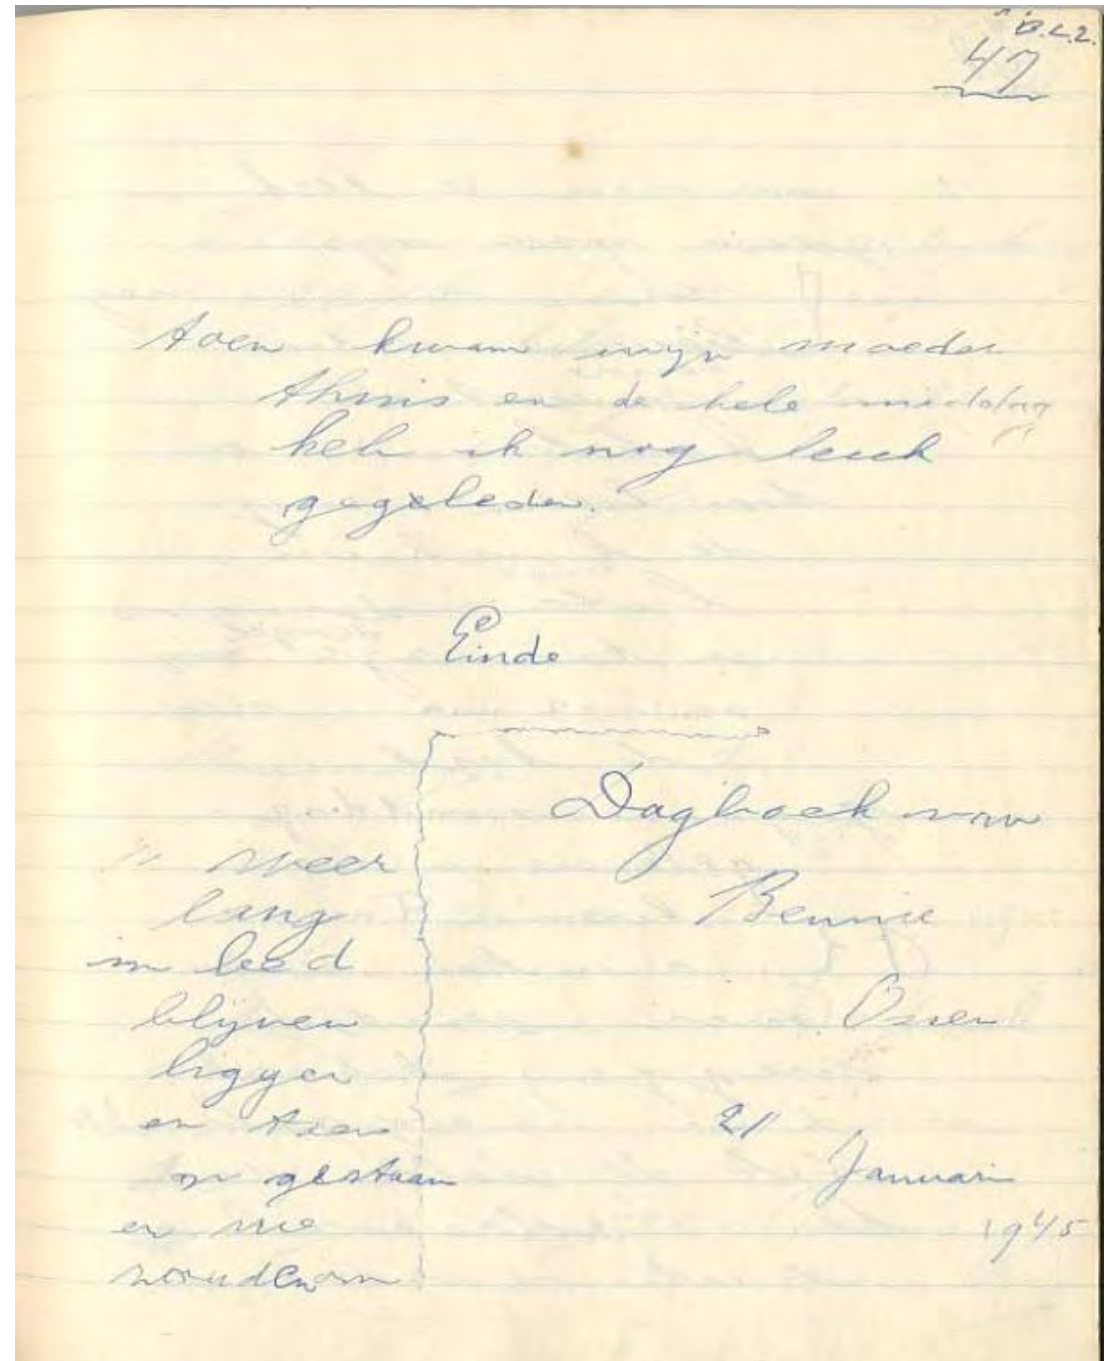 B.C.2.
47
toen kwam mijn moeder
thuis en de hele middag
heb ik nog leuk
gegeleden.
Einde
Dagboek van
Bennie
21
Januari
1945
weer
lang
in beed
blijven
liggen
en toen
op gestaan
en me